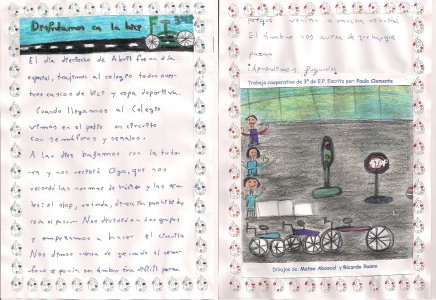 Disfrutamos en la bici
El día dieciocho de Abril fue un día
especial, trajimos al colegio todos nues-
tros cascos de bici y ropa deportiva.
Cuando llegamos al Colegio
vimos en el patio un circuito
con semáforos y señales.
A las diez bajamos con la tuto-
ra y nos recibió Olga, que nos
recordó las normas de tráfico y las
el stop, rotonda, dirección prohibida
ceda el paso. Nos dividió en dos grupos
y empezamos a hacer el circuito
Nos dimos cuenta de que cuando el semá-
foro se ponía en ámbar era difícil parar
porque venías a mucha velocidad
El ámbar nos avisa de que hay que
parar
¡Aprendimos jugando!
Trabajo cooperativo de 3º de E.P. Escrito por: Paula Clemente
STOP
Dibujos de: Mateo Abascal y Ricardo Ruano